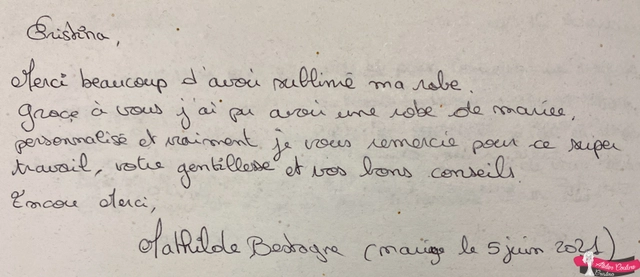 Cristina,
Merci beaucoup d'avoir sublimé ma robe.
Grace à vous j'ai pu avoir une robe de mariée,
personnalisé et vraiment je vous remercie pour ce super
travail, votre gentillesse et vos bons conseils.
Encore Merci,
Mathilde (mariage le 5 juin 2021)
Atelier Couture